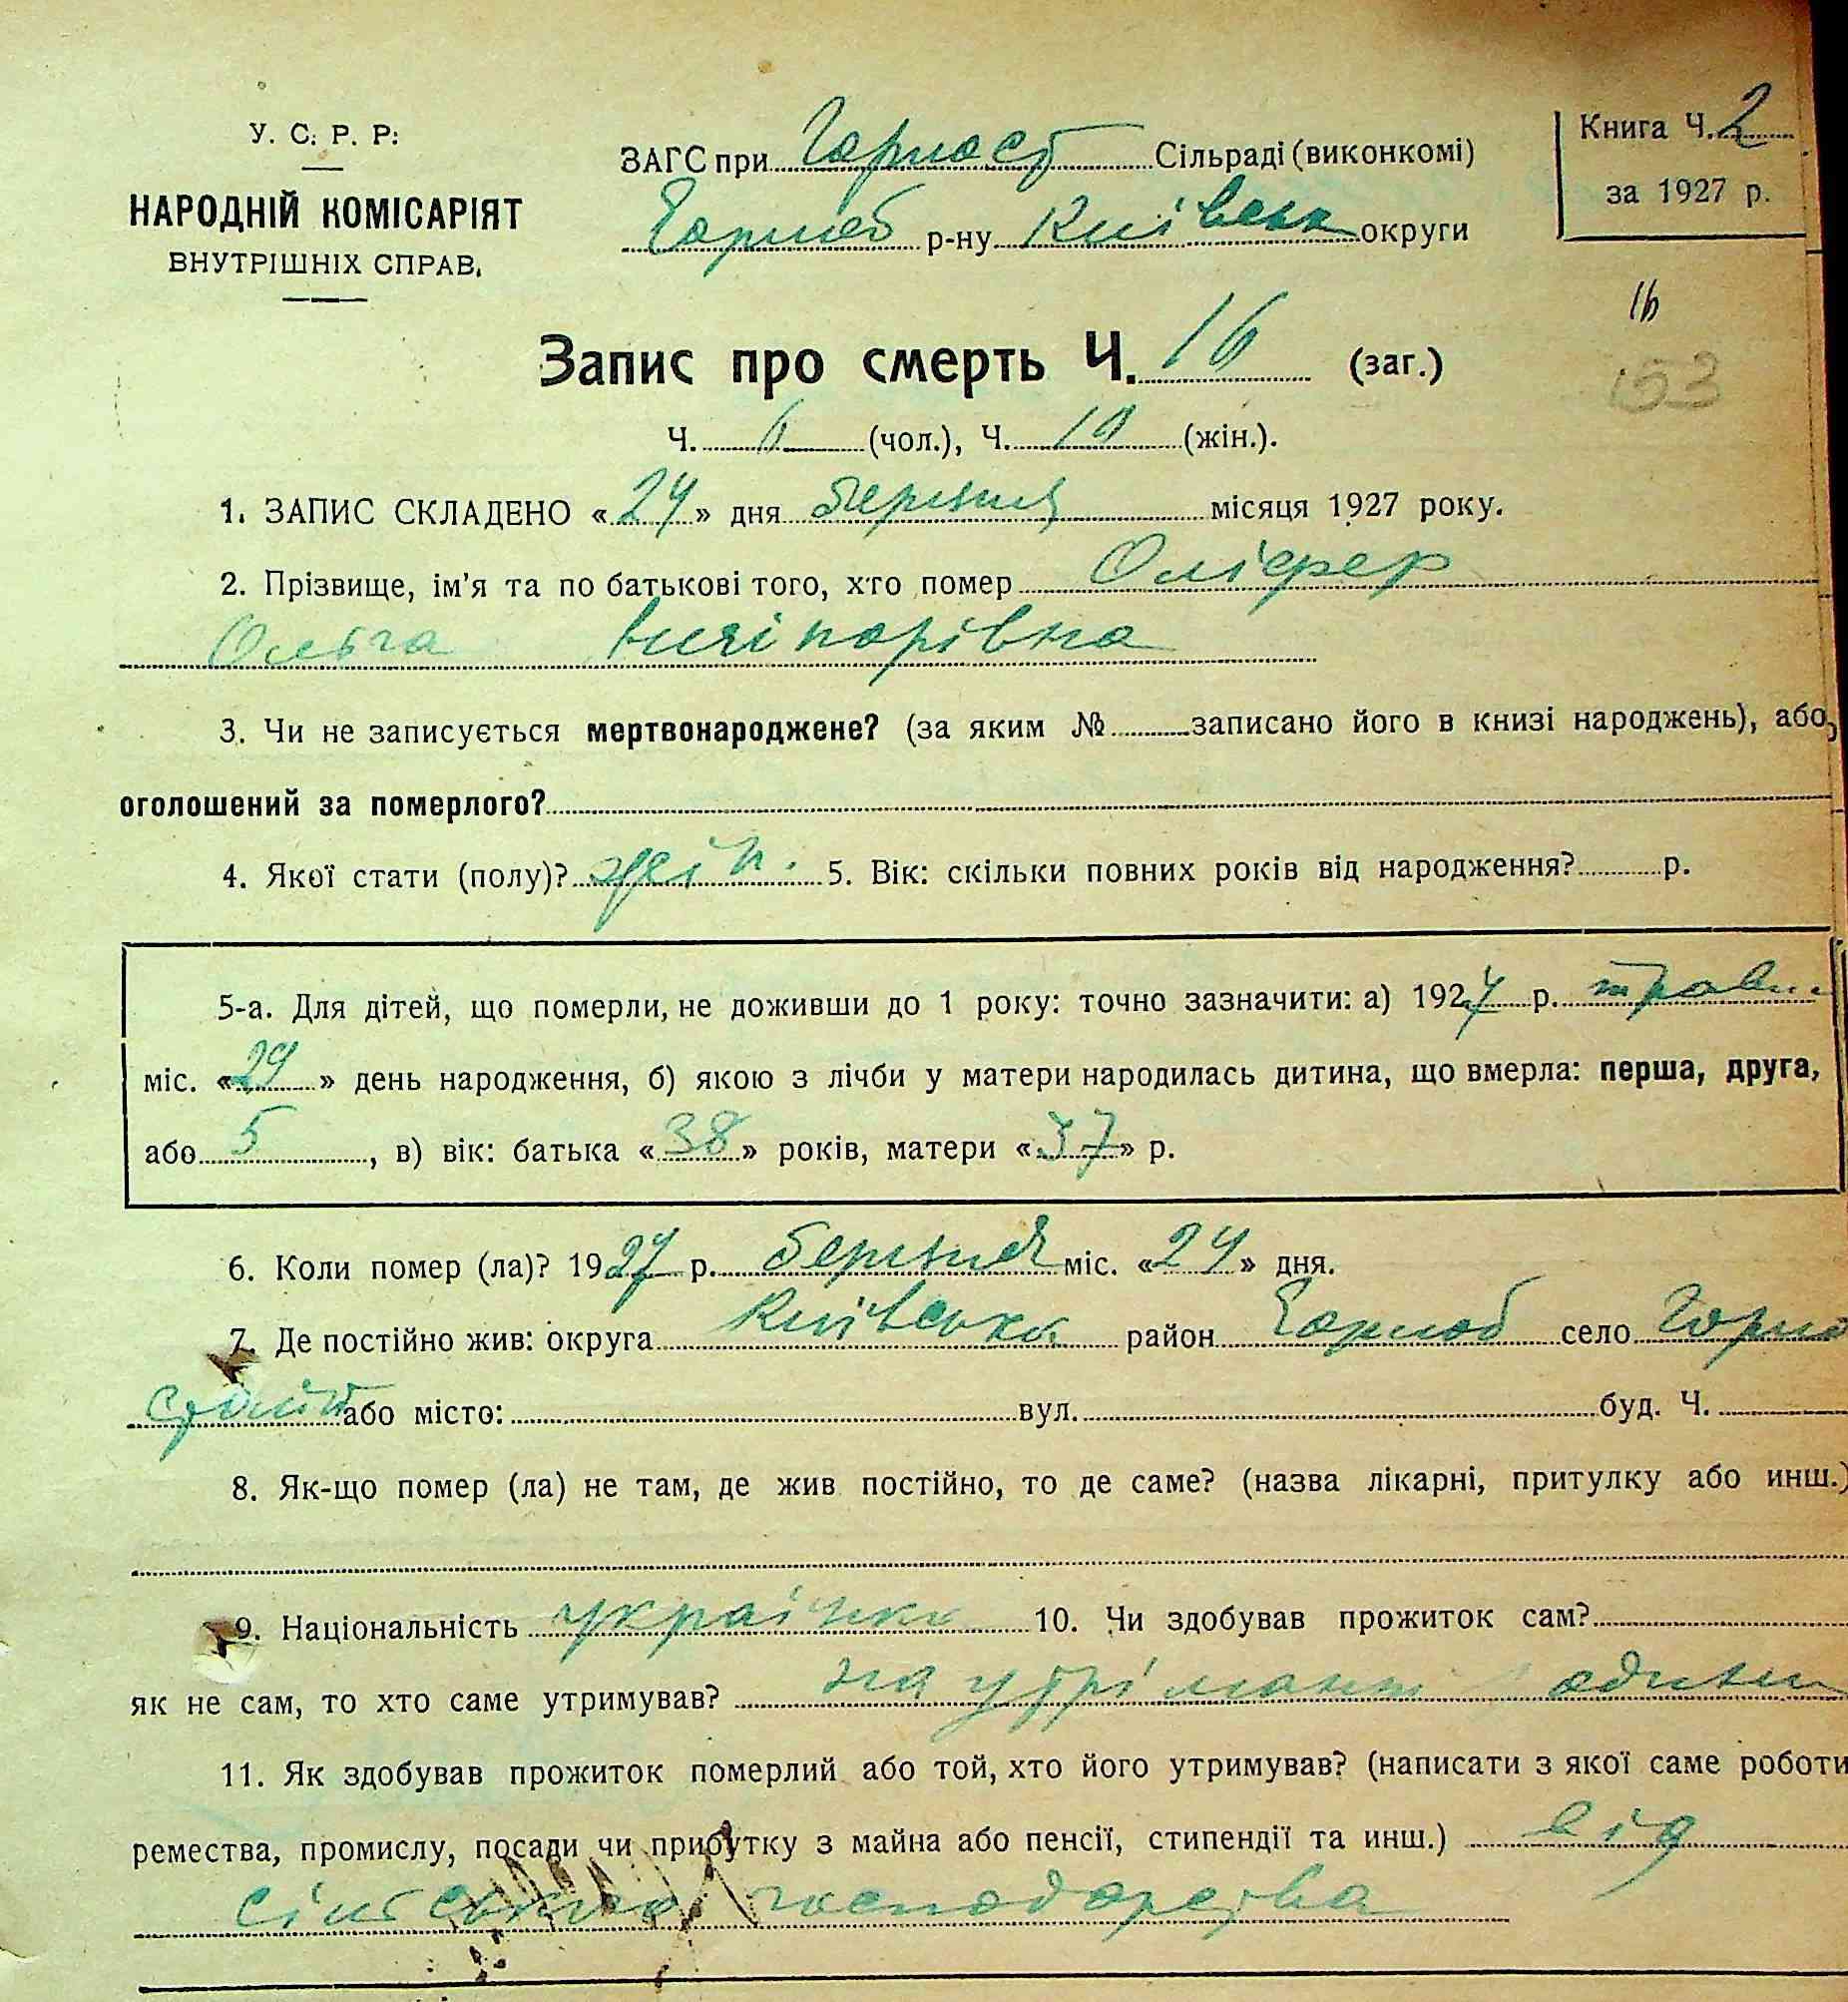 У. С. Р. Р.
НАРОДНІЙ КОМІСАРІЯТ
ВНУТРІШНІХ СПРАВ.
ЗАГС при Горност Сільраді (виконкомі)
р-ну Київськ округи
Книга Ч. 2
за 1927 р.
16
153
Запис про смерть Ч. 16 (заг.)
Ч. 6 (чол.), Ч. 10 (жін.).
1. ЗАПИС СКЛАДЕНО « 24 » дня березня місяця 1927 року.
2. Прізвище, ім'я та по батькові того, хто помер Оліфер
Ольга Ничіпорівна
3. Чи не записується мертвонароджене? (за яким № записано його в книзі народжень), або
оголошений за померлого?
4. Якої стати (полу)? жін. 5. Вік: скільки повних років від народження? р.
5-а. Для дітей, що померли, не доживши до 1 року: точно зазначити: а) 1927 р. травн
міс. « 29 » день народження, б) якою з лічби у матери народилась дитина, що вмерла: перша, друга,
або 5, в) вік: батька « 38 » років, матери « 37 » р.
6. Коли помер (ла)? 1927 р. березня міс. « 24 » дня.
7. Де постійно жив: округа Київська район село Горно
стайп або місто: вул. буд. Ч.
8. Як-що помер (ла) не там, де жив постійно, то де саме? (назва лікарні, притулку або инш.)
9. Національність українка 10. Чи здобував прожиток сам?
як не сам, то хто саме утримував? на утріманні родини
11. Як здобував прожиток померлий або той, хто його утримував? (написати з якої саме роботи
ремества, промислу, посади чи прибутку з майна або пенсії, стипендії та инш.) від
сільського господарства